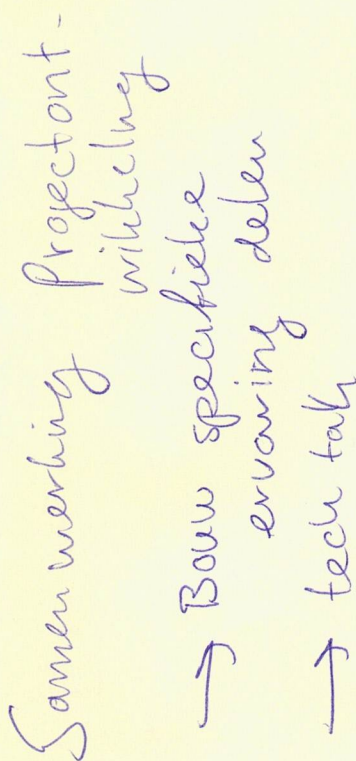 Samenwerking Projectont-
wikkeling
→ Bouw specifieke
ervaring delen
→ tech tak